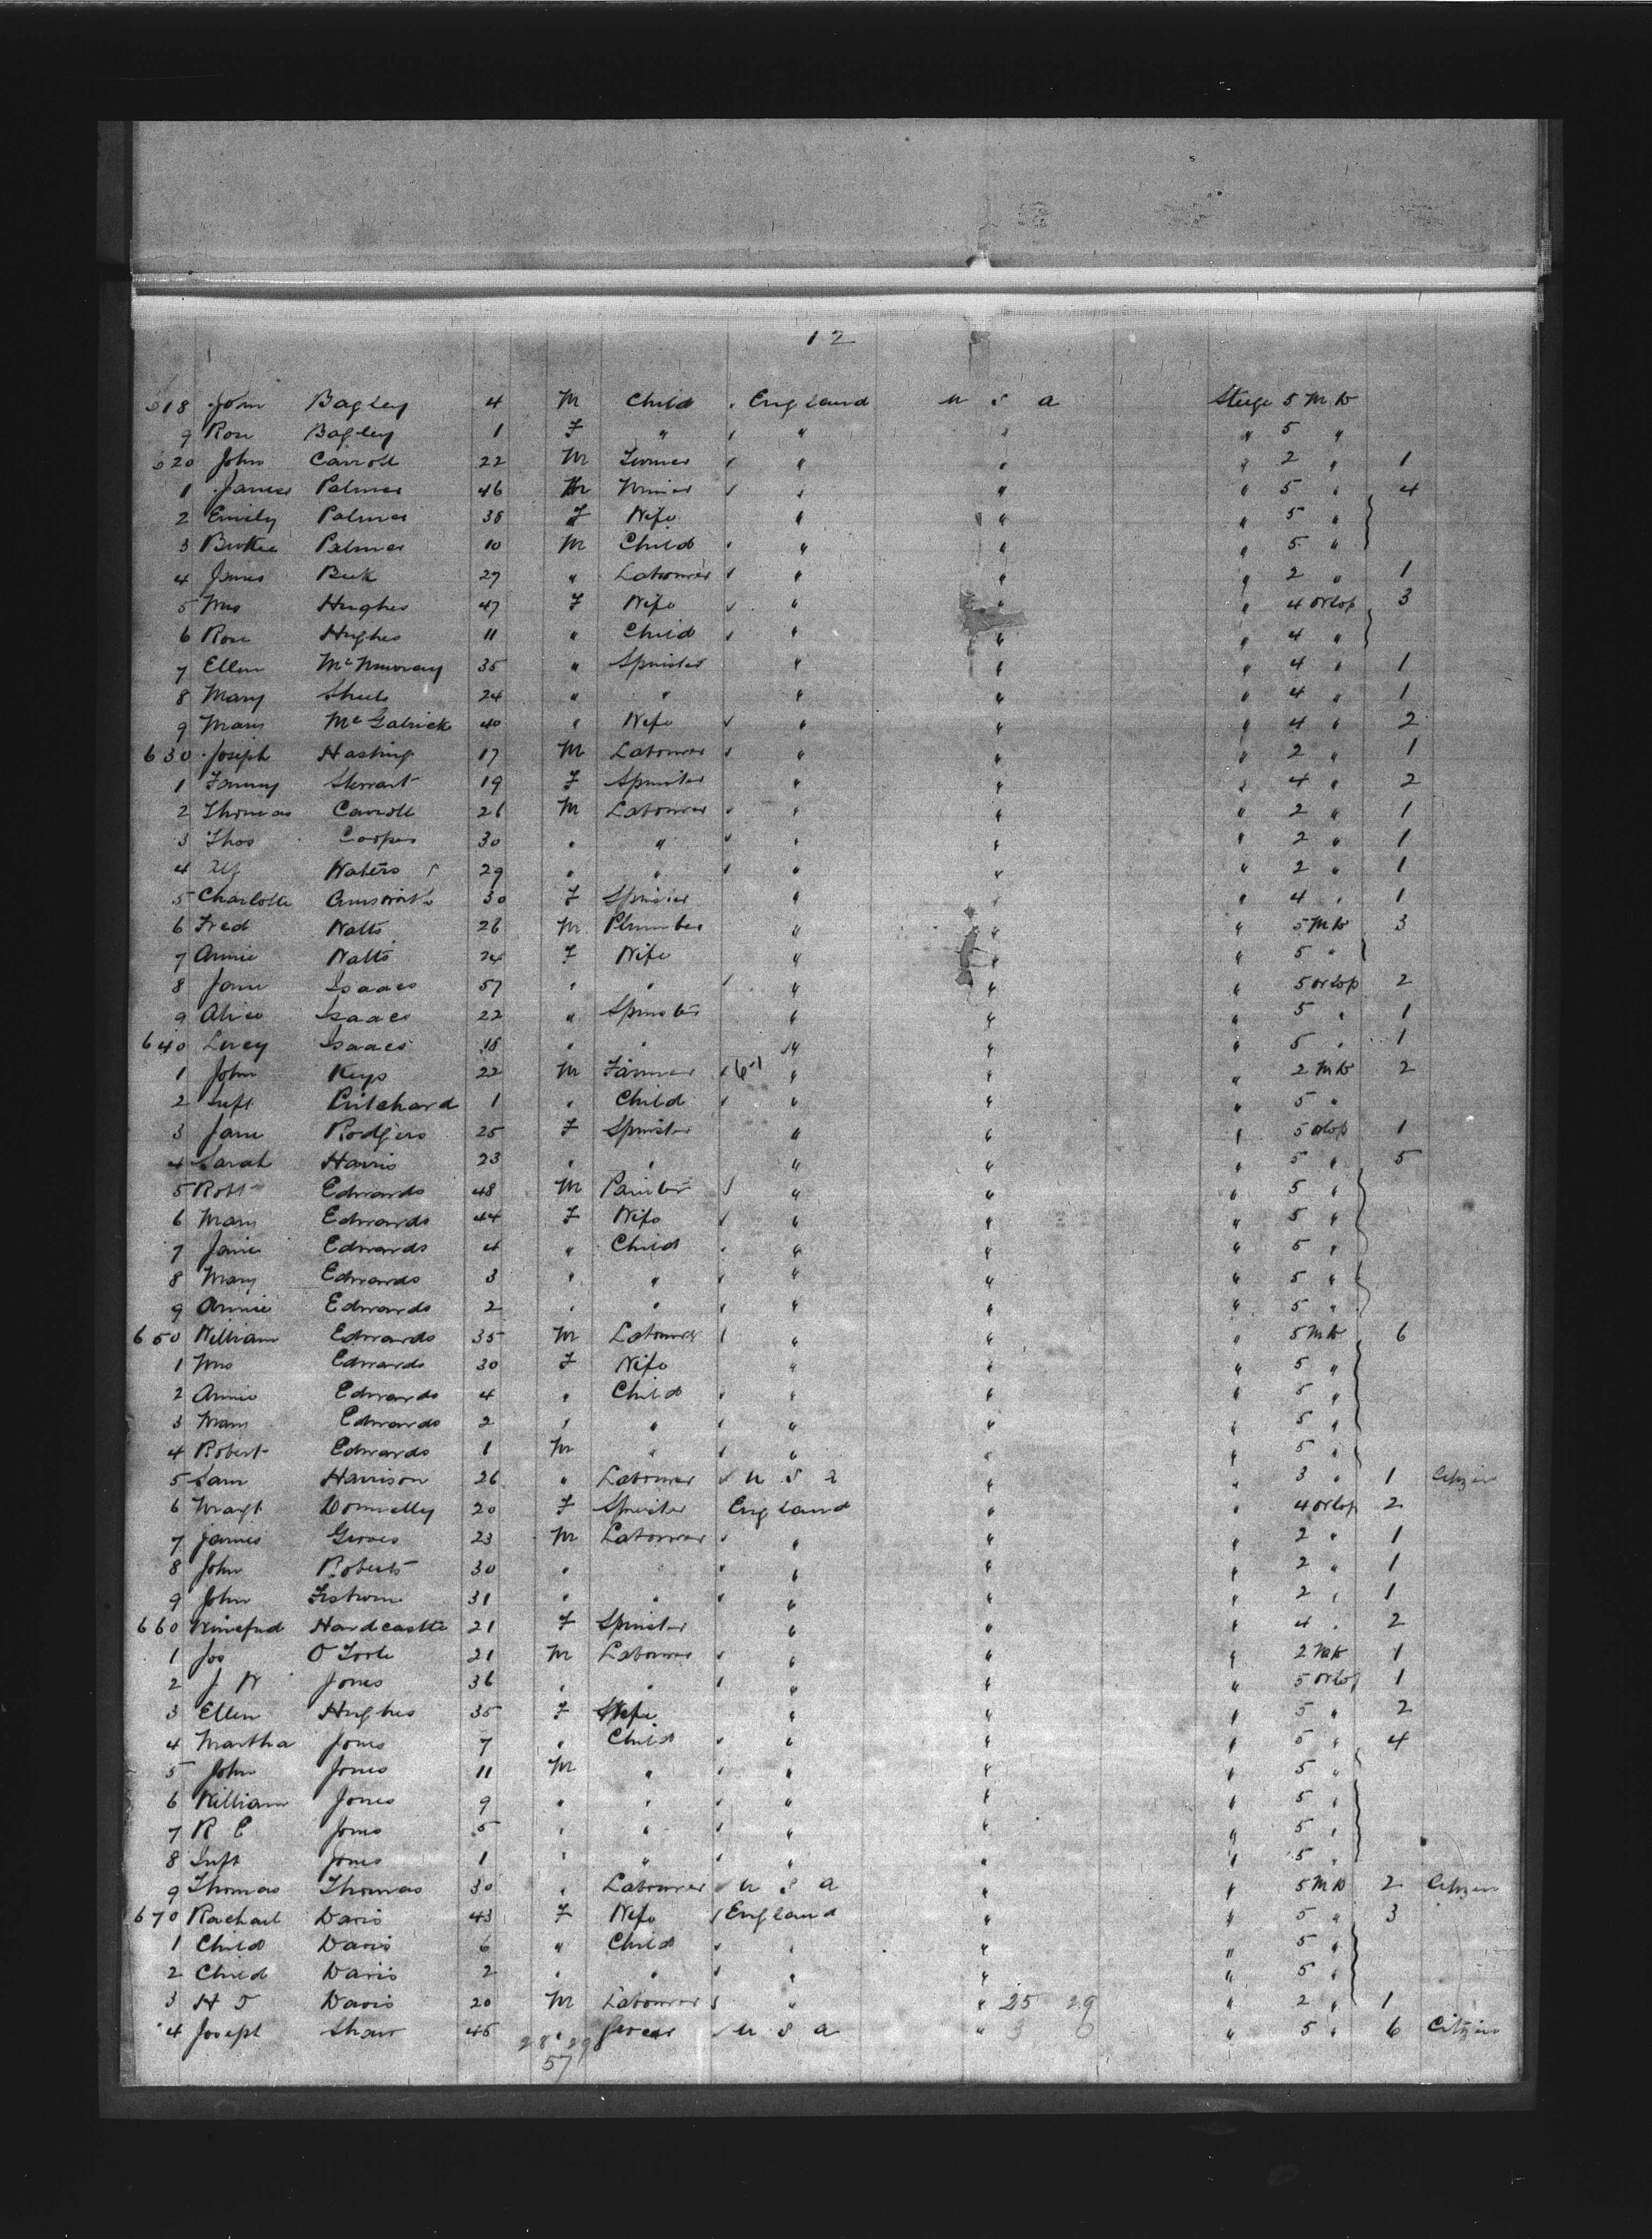 12
618 John Bagley 4 M Child England U S A Steege 5 M D
9 Rose Bagley 1 F " " " " 5 "
620 John Carroll 22 M " " " 2 " 1
1 James Palmer 46 M " " " 5 " 4
2 Emily Palmer 38 F Wife " " " 5 "
3 Palmer 10 M Child " " " 5 "
4 James 27 " Labourer " " " 2 " 1
5 Mrs Hughes 47 F Wife " " " 4 orlop 3
6 Rose Hughes 11 " Child " " " 4 "
7 Ellen 35 " Spinster " " " 4 " 1
8 Mary 24 " " " " " 4 " 1
9 Mary 40 " Wife " " " 4 " 2
630 Joseph Hasting 17 M Labourer " " " 2 " 1
1 Fanny Stewart 19 F Spinster " " " 4 " 2
2 Thomas Carroll 26 M Labourer " " " 2 " 1
3 Thos Cooper 30 " " " " " 2 " 1
4 Alf Waters 29 " " " " " 2 " 1
5 Charlotte 30 F Spinster " " " 4 " 1
6 Fred Watts 26 M Plumber " " " 5 M D 3
7 Annie Watts 24 F Wife " " " 5 "
8 Jane Isaacs 57 " " " " " 5 orlop 2
9 Alice Isaacs 22 " Spinster " " " 5 " 1
640 Isaacs 18 " " " " " 5 " 1
1 John Keys 22 M Farmer " " " 2 M D 2
2 Inft Pritchard 1 " Child " " " 5 "
3 Jane Rodgers 25 F Spinster " " " 5 olop 1
4 Sarah Harris 23 " " " " " 5 " 5
5 Robt Edwards 48 M Painter " " " 5 "
6 Mary Edwards 44 F Wife " " " 5 "
7 Janie Edwards 4 " Child " " " 5 "
8 Mary Edwards 3 " " " " " 5 "
9 Annie Edwards 2 " " " " " 5 "
650 William Edwards 35 M Labourer " " " 5 M D 6
1 Mrs Edwards 30 F Wife " " " 5 "
2 Annie Edwards 4 " Child " " " 5 "
3 Mary Edwards 2 " " " " " 5 "
4 Robert Edwards 1 M " " " " 5 "
5 Sam Harrison 26 " Labourer U S A " " 3 " 1 Citizen
6 Margt Donnelly 20 F Spinster England " " 4 orlop 2
7 James Groves 23 M Labourer " " " 2 " 1
8 John Roberts 30 " " " " " 2 " 1
9 John 31 " " " " " 2 " 1
660 Winefud Hardcastle 21 F Spinster " " " 4 " 2
1 Jos O'Toole 21 M Labourer " " " 2 M D 1
2 J W Jones 36 " " " " " 5 orlop 1
3 Ellen Hughes 35 F Wife " " " 5 " 2
4 Martha Jones 7 " Child " " " 5 " 4
5 John Jones 11 M " " " " 5 "
6 William Jones 9 " " " " " 5 "
7 R E Jones 5 " " " " " 5 "
8 Inft Jones 1 " " " " " 5 "
9 Thomas Thomas 30 " Labourer U S A " " 5 M D 2 Citizen
670 Rachael Davis 43 F Wife England " " 5 " 3
1 Child Davis 6 " Child " " " 5 "
2 Child Davis 2 " " " " " 5 "
3 H T Davis 20 M Labourer " " 25 29 " 2 " 1
4 Joseph Shaw 45 " Grocer U S A " 3 0 " 5 " 6 Citizen
28 29
57